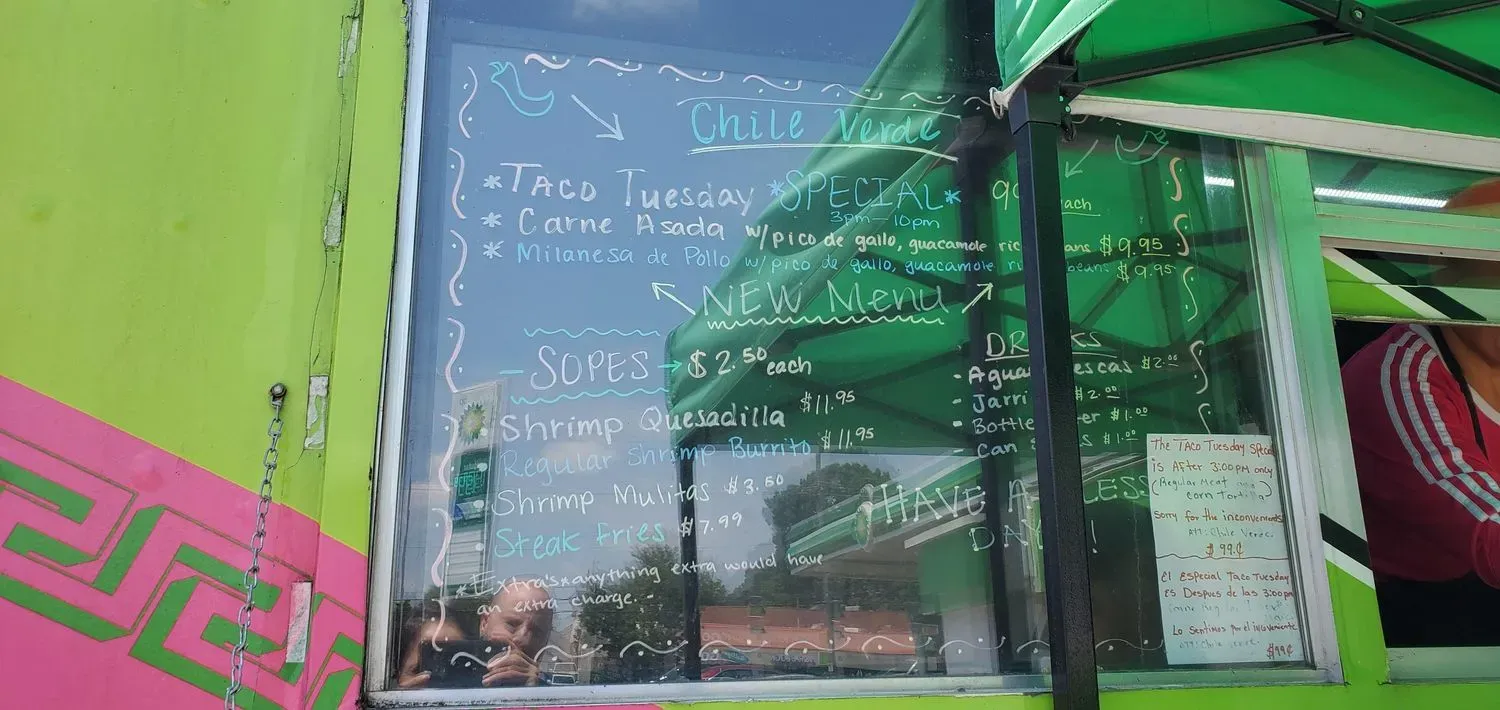 Chile Verde
*TACO Tuesday *SPECIAL* each
3pm - 10pm
* Carne Asada w/pico de gallo, guacamole $9.95
* Milanesa de Pollo w/pico de gallo, guacamole beans $9.95
NEW Menu
- SOPES → $2.50 each
Shrimp Quesadilla $11.95
Regular Shrimp Burrito $11.95
Shrimp Mulitas $3.50
Steak Fries $7.99
*Extra's*anything extra would have
an extra charge. -
- $2.00
- $2.00
- Bottle $1.00
- Can $1.00
HAVE A
The TACO Tuesday
is AFter 3:00PM only
(Regular Meat
corn Tortilla)
Sorry for the inconvenients
ATT: Chile Verde.
$ 99.¢
El Especial Taco Tuesday
Es Despues de las 3:00pm
Lo Sentimos por el inconveniente
$99¢